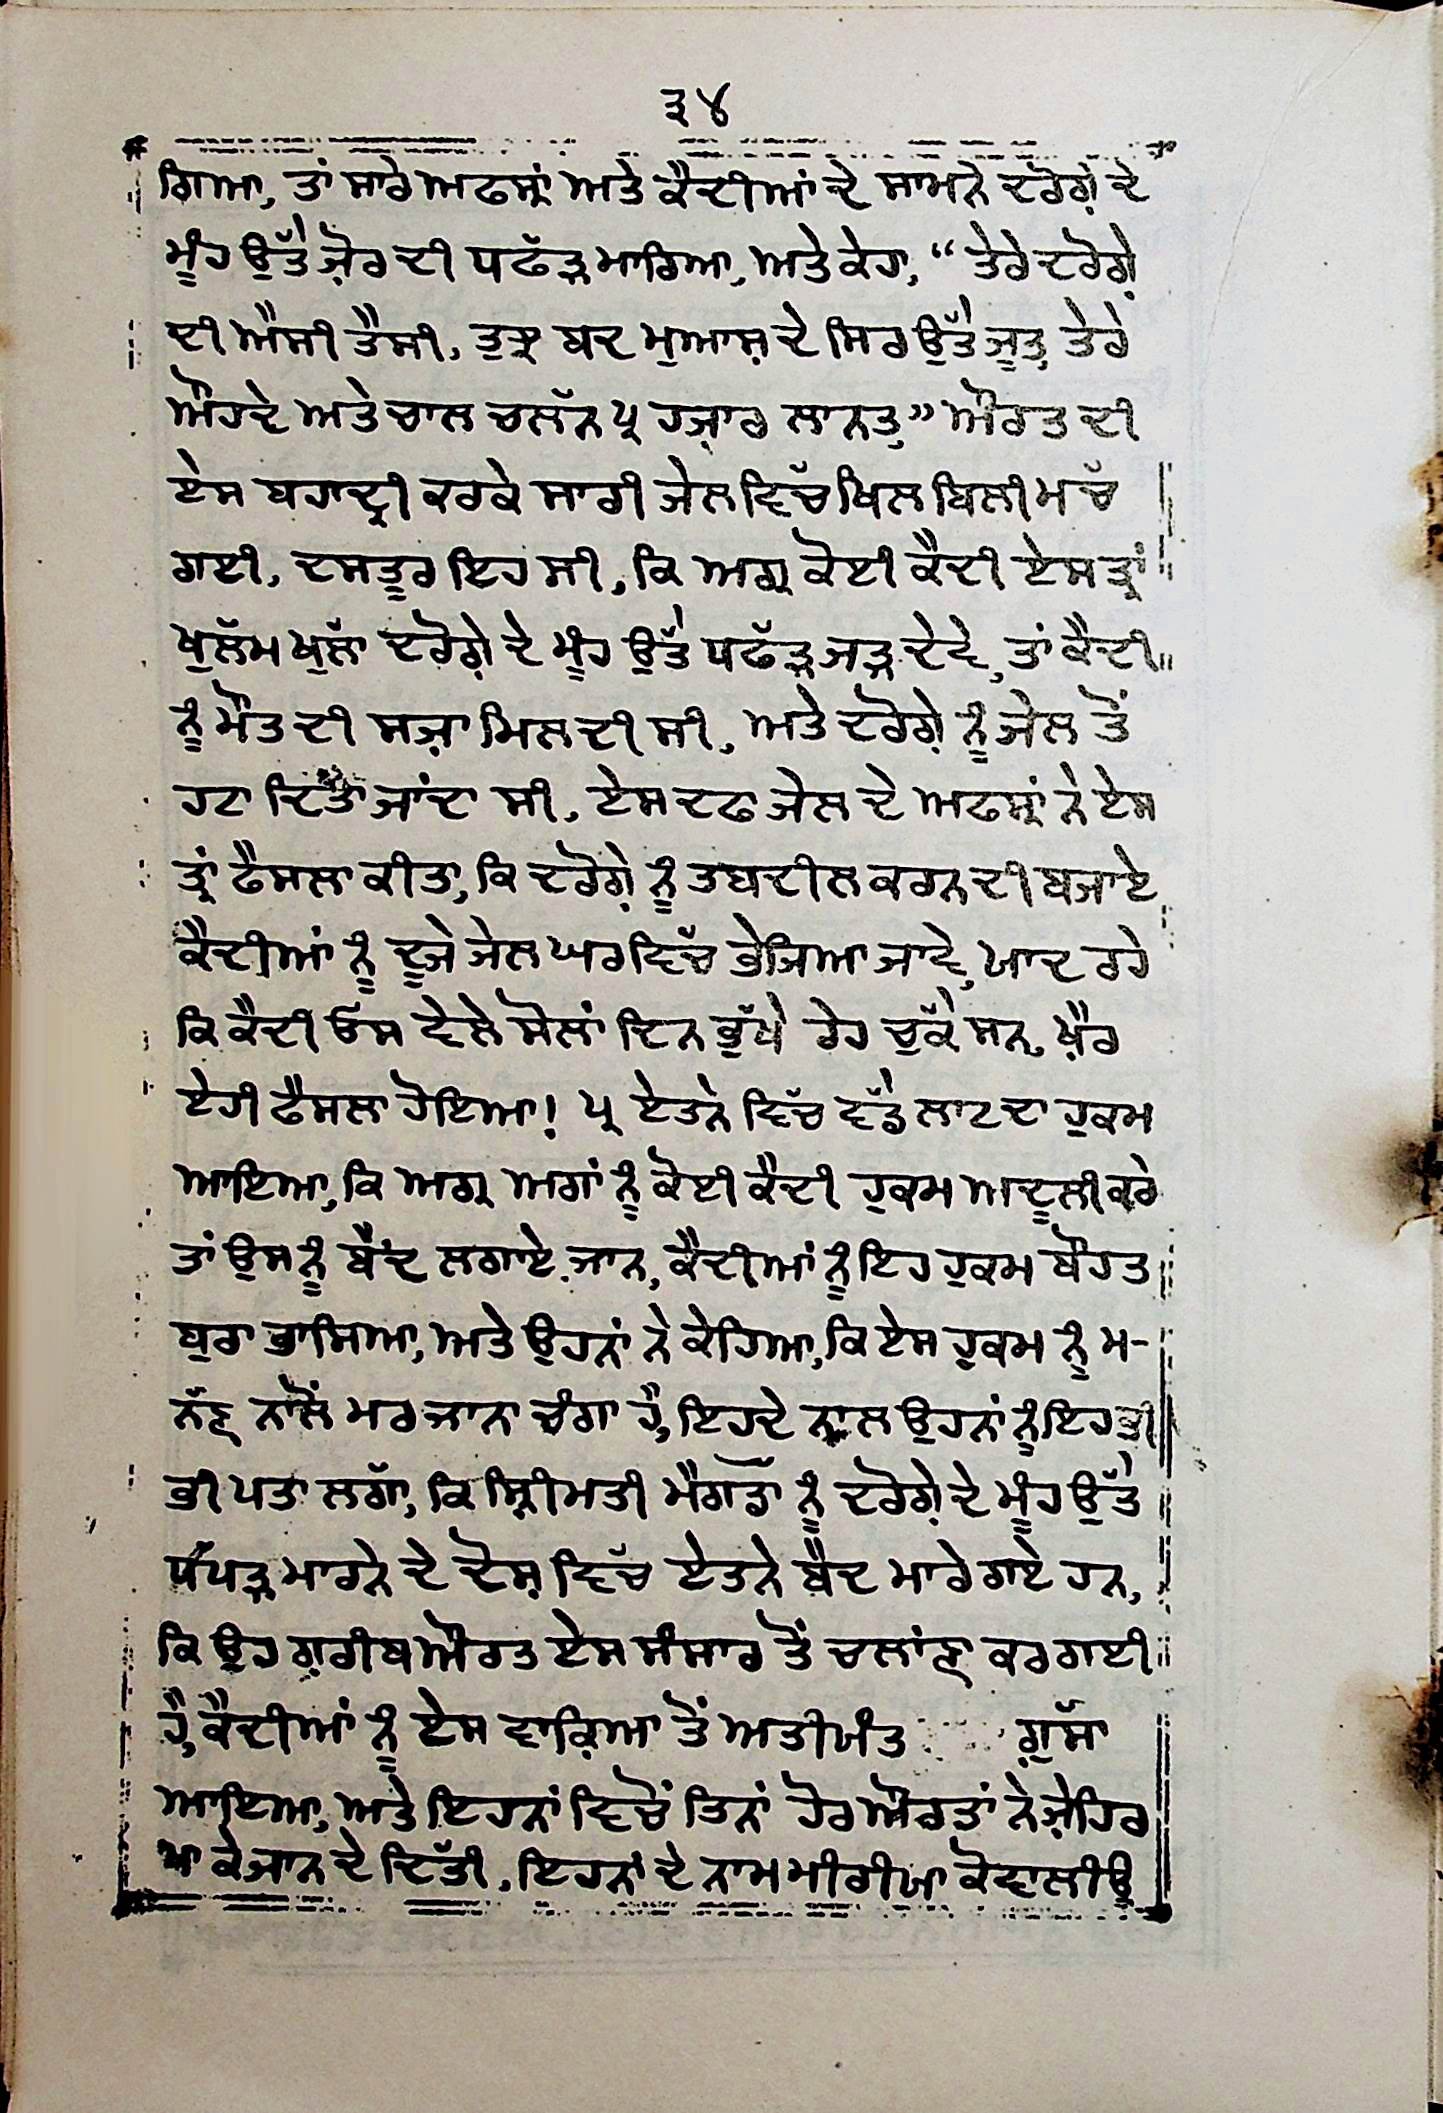 ੩੪
ਗਿਆ, ਤਾਂ ਸਾਰੇ ਅਫਸ੍ਰਾਂ ਅਤੇ ਕੈਦੀਆਂ ਦੇ ਸਾਮਨੇ ਦਰੋਗ਼ੇ ਦੇ
ਮੂੰਹ ਉੱਤੇ ਜ਼ੋਰ ਦੀ ਧਫੱੜ ਮਾਰਿਆ, ਅਤੇ ਕੇਹਾ, “ ਤੇਰੇ ਦਰੋਗ਼ੇ
ਦੀ ਐਸੀ ਤੈਸੀ, ਤੁਝ ਬਦ ਮੁਆਸ਼ ਦੇ ਸਿਰ ਉੱਤੇ ਜੂਤ, ਤੇਰੇ
ਔਹਦੇ ਅਤੇ ਚਾਲ ਚਲੱਨ ਪ੍ਰ ਹਜ਼ਾਰ ਲਾਨਤ,” ਔਰਤ ਦੀ
ਏਸ ਬਹਾਦ੍ਰੀ ਕਰਕੇ ਸਾਰੀ ਜੇਲ ਵਿੱਚ ਖਿਲ ਬਿਲੀ ਮਚੱ
ਗਈ, ਦਸਤੂਰ ਇਹ ਸੀ, ਕਿ ਅਗ੍ਰ ਕੋਈ ਕੈਦੀ ਏਸ ਤ੍ਰਾਂ
ਖੁਲੱਮ ਖੁਲਾੱ ਦਰੋਗ਼ੇ ਦੇ ਮੂੰਹ ਉੱਤੇ ਧਫੱੜ ਜੜ ਦੇਵੇ, ਤਾਂ ਕੈਦੀ
ਨੂੰ ਮੌਤ ਦੀ ਸਜ਼ਾ ਮਿਲ ਦੀ ਸੀ, ਅਤੇ ਦਰੋਗ਼ੇ ਨੂੰ ਜੇਲ ਤੋਂ
ਹਟਾ ਦਿਤਾ ਜਾਂਦਾ ਸੀ, ਏਸ ਦਫ ਜੇਲ ਦੇ ਅਫਸ੍ਰਾਂ ਨੇ ਏਸ
ਤ੍ਰਾਂ ਫੈਸਲਾ ਕੀਤਾ, ਕਿ ਦਰੋਗ਼ੇ ਨੂੰ ਤਬਦੀਲ ਕਰਨ ਦੀ ਬਜਾਏ
ਕੈਦੀਆਂ ਨੂੰ ਦੂਜੇ ਜੇਲ ਘਰ ਵਿੱਚ ਭੇਜਿਆ ਜਾਵੇ, ਯਾਦ ਰਹੇ
ਕਿ ਕੈਦੀ ਓਸ ਵੇਲੇ ਸੋਲਾਂ ਦਿਨ ਭੁੱਖੇ ਰੇਹ ਚੁੱਕੇ ਸਨ, ਖ਼ੈਰ
ਏਹੀ ਫੈਸਲਾ ਹੋਇਆ! ਪ੍ਰ ਏਤਨੇ ਵਿੱਚ ਵੱਡੇ ਲਾਟ ਦਾ ਹੁਕਮ
ਆਇਆ, ਕਿ ਅਗ੍ਰ ਅਗਾਂ ਨੂੰ ਕੋਈ ਕੈਦੀ ਹੁਕਮ ਅਦੂਲੀ ਕਰੇ
ਤਾਂ ਉਸ ਨੂੰ ਬੈਂਦ ਲਗਾਏ ਜਾਨ, ਕੈਦੀਆਂ ਨੂੰ ਇਹ ਹੁਕਮ ਬੌਹਤ
ਬੁਰਾ ਭਾਸਿਆ, ਅਤੇ ਉਹਨਾਂ ਨੇ ਕੇਹਿਆ, ਕਿ ਏਸ ਹੁਕਮ ਨੂੰ ਮ-
ਨੱਣ ਨਾਲੋਂ ਮਰ ਜਾਨਾ ਚੰਗਾ ਹੈ, ਇਹਦੇ ਨਾਲ ਉਹਨਾਂ ਨੂੰ ਇਹ ਭੀ
ਭੀ ਪਤਾ ਲਗਾੱ, ਕਿ ਸ੍ਰੀਮਤੀ ਮੈਗਾਡੋ ਨੂੰ ਦਰੋਗ਼ੇ ਦੇ ਮੂੰਹ ਉੱਤੇ
ਥੱਪੜ ਮਾਰਨੇ ਦੇ ਦੋਸ਼ ਵਿੱਚ ਏਤਨੇ ਬੈਂਦ ਮਾਰੇ ਗਏ ਹਨ,
ਕਿ ਉਹ ਗ਼ਰੀਬ ਔਰਤ ਏਸ ਸੰਸਾਰ ਤੋਂ ਚਲਾਂਣਾ ਕਰ ਗਈ
ਹੈ, ਕੈਦੀਆਂ ਨੂੰ ਏਸ ਵਾਕਿਆ ਤੋਂ ਅਤੀਯੰਤ ਗੁੱਸਾ
ਆਇਆ, ਅਤੇ ਇਹਨਾਂ ਵਿਚੋਂ ਤਿਨਾਂ ਹੋਰ ਔਰਤਾਂ ਨੇ ਜ਼ੇਹਿਰ
ਖਾ ਕੇ ਜਾਨ ਦੇ ਦਿੱਤੀ, ਇਹਨਾਂ ਦੇ ਨਾਮ ਮੀਰੀਯਾ ਕੋਵਾਲੀਉ